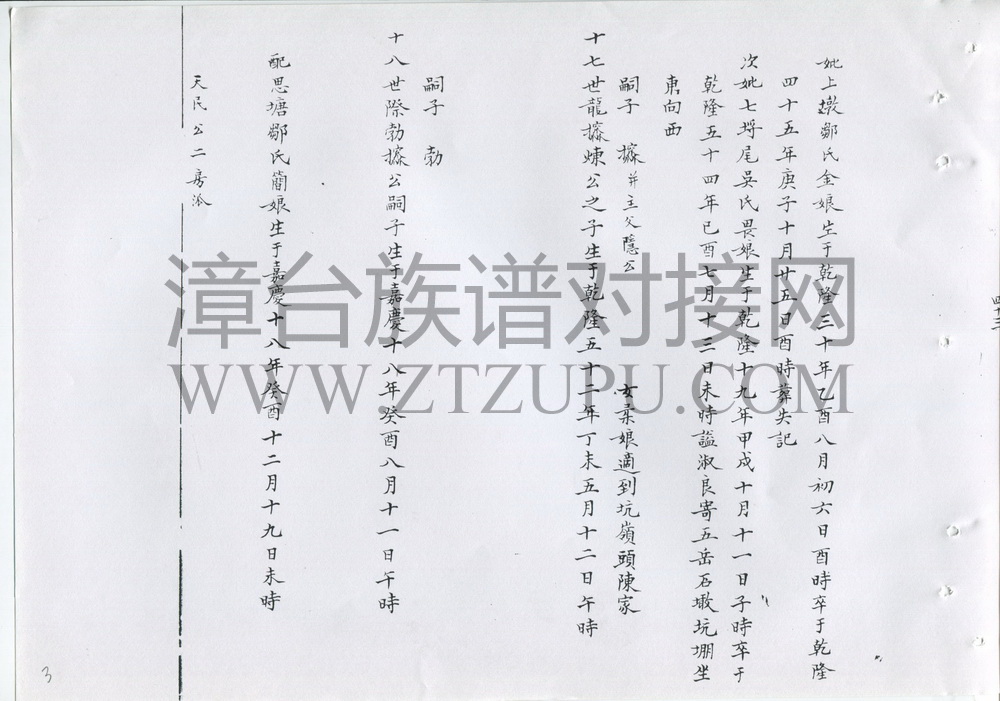 妣上墩鄒氏金娘生于乾隆三十年乙酉八月初六日酉時卒于乾隆
四十五年庚子十月廿五日酉時葬失記
次妣七埒尾吳氏畏娘生于乾隆十九年甲戌十月十一日子時卒于
乾隆五十四年已酉七月十三日未時謚淑良寄五岳石墩坑堋坐
東向西
嗣子 搽 并主父隱公 女柔娘適到坑嶺頭陳家
十七世龍搽煉公之子生于乾隆五十二年丁未五月十二日午時
嗣子 勃
十八世際勃搽公嗣子生于嘉慶十八年癸酉八月十一日午時
配思塘鄒氏蕳娘生于嘉慶十八年癸酉十二月十九日未時
天民公二房派
四十二
3
漳台族谱对接网
WWW.ZTZUPU.COM